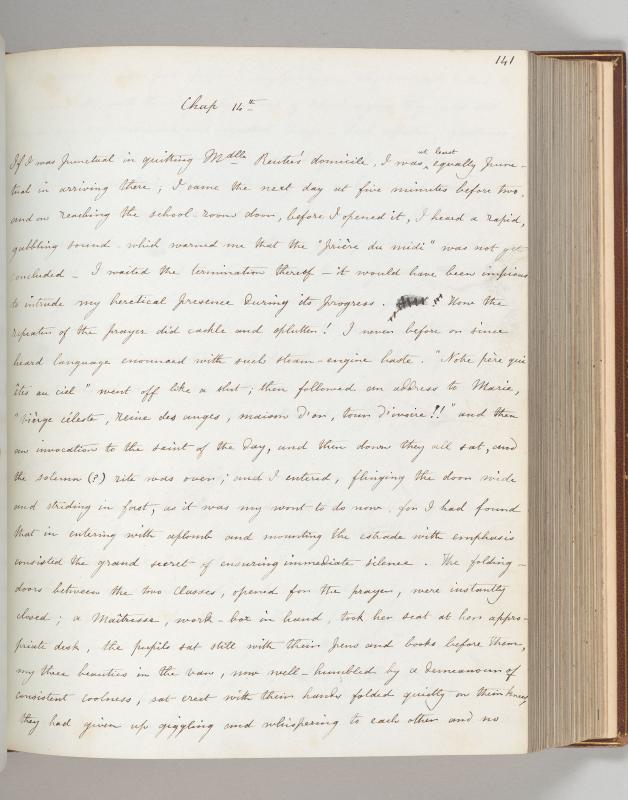 141
Chap 14th
If I was punctual in quitting Mdlle Reuter's domicile, I was at least equally punc-
tual in arriving there; I came the next day at five minutes before two,
and on reaching the school-room door, before I opened it, I heard a rapid,
gabbling sound which warned me that the "prière du midi" was not yet
concluded - I waited the termination thereof - it would have been impious
to intrude my heretical presence during its progress. How the
repeater of the prayer did cackle and splutter! I never before or since
heard language enounced with such steam-engine haste. "Notre père qui
êtes au ciel" went off like a shot; then followed an address to Marie,
"Vièrge céleste, reine des anges, maison d'or, tour d'ivoire!!" and then
an invocation to the saint of the day, and then down they all sat, and
the solemn (?) rite was over; and I entered, flinging the door wide
and striding in fast, as it was my wont to do now, for I had found
that in entering with aplomb and mounting the estrade with emphasis
consisted the grand secret of ensuring immediate silence. The folding-
doors between the two classes, opened for the prayer, were instantly
closed; a Maîtresse, work-box in hand, took her seat at her appro-
priate desk, the pupils sat still with their pens and books before them,
my three beauties in the van, now well-humbled by a demeanour of
consistent coolness, sat erect with their hands folded quietly on their knees,
they had given up giggling and whispering to each other and no